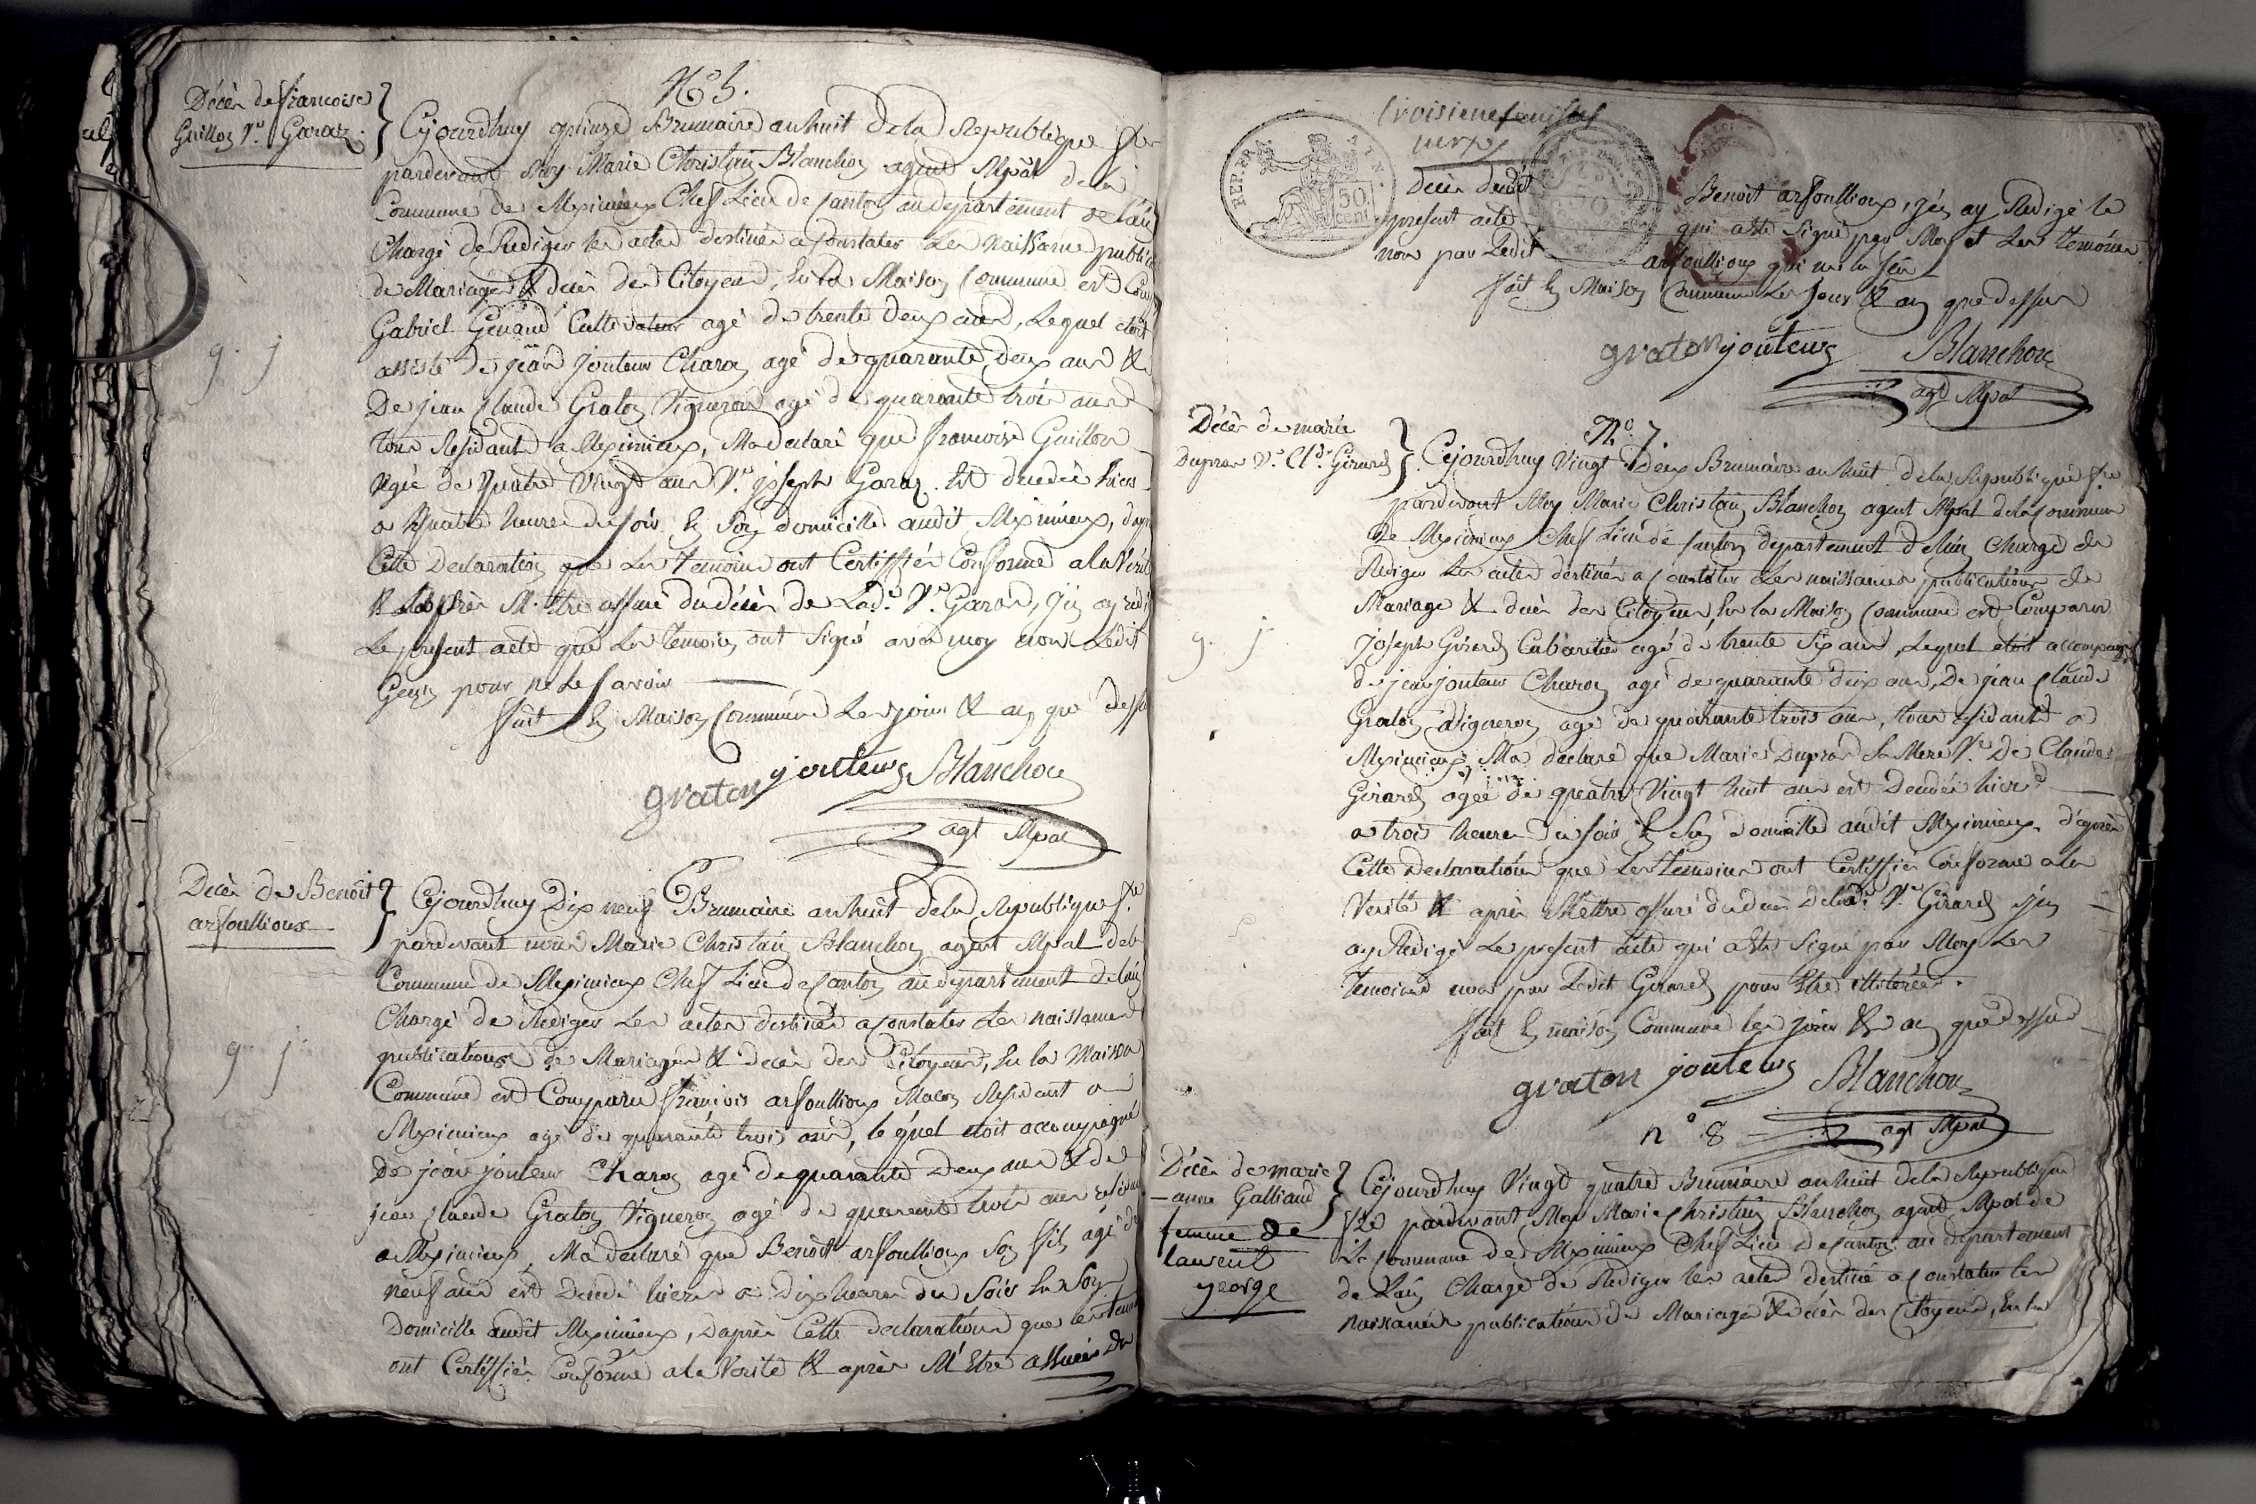 N.º 5.
Décèr de francoise
Guillon V.e Garaz.
Cejourdhuy quinze Brumaire an huit de la Republique f.se
pardevant Moy Marie Christain Blanchon agent Mpal de la
Commune de Meximieux Chef Lieu de Canton au departement de l'ain
Chargé de Rediger les actes destinés a Constater les Naissances publica
de Mariages & décès des Citoyens, En la Maison Commune est Comp
Gabriel Cultivateur agé de trente deux ans, Lequel etoit
assisté de jean jouteur Charon agé de quarante deux ans &
De jean Claude Graton Vigneron agé de quarante trois ans
tous Residants a Meximieux, Ma declaré que francoise Guillon
Agée de Quatre Vingt ans V.e joseph Garaz. Est decedée hier
a Quatre heures du soir En Son domicille audit Meximieux, d'apr
Cette Declaration que Les Temoins ont Certiffiés Conforme a la Verit
& après M'être assuré du décès de Lad.e V.e Garaz, j'en ay redi
Le present acte que Les Temoins ont Signé avec moy non Ledit
pour ne Le Savoir
fait En Maison Commune Les jour & an que dessu
graton jouteur Blanchon
agt Mpal
6
Décès de Benoît
arfoullioux
Cejourdhuy Dix neuf Brumaire an huit de la Republique f.se
pardevant nous Marie Christain Blanchon agent Mpal de la
Commune de Meximieux Chef Lieu de Canton au departement de l'ain
Chargé de Rediger Les actes destinés a Constater Les naissances
publications de Mariages & décès des Citoyens, En la Maison
Commune est Comparu francois arfoullioux Macon Resident a
Meximieux agé de quarante trois ans, lequel etoit accompagné
De jean jouteur Charon agé de quarante Deux ans & de
jean Claude Graton Vigneron agé de quarante trois ans residan
a Meximieux, Ma declaré que Benoît arfoullioux Son fils agé de
neuf ans est Decedé hier a Dix heures du Soir En Son
Domicille audit Meximieux, D'après Cette declaration que les temoi
ont Certiffiés Conforme a la Verité & après M'Etre assuré Du
troisieme feuillet
REP. FRA. 50 cent
decès dudit Benoît arfoullioux, j'en ay Redigé le
present acte qui a été Signé par Moy et Les Temoins
non par Ledit arfoullioux
fait En Maison Commune Les Jour & an que dessus
graton jouteur Blanchon
agt Mpal
N.º 7.
Décès de marie
Dupras V.e Cl.de Girard
Cejourdhuy Vingt Deux Brumaire an huit de la Republique f.se
pardevant Moy Marie Christain Blanchon agent Mpal de la Commune
de Meximieux Chef Lieu de Canton departement de l'ain Chargé de
Rediger Les actes destinés a Constater Les naissances publications de
Mariage & decès des Citoyens, En la Maison Commune est Comparu
joseph Girard Cabaretier agé de trente Six ans, Lequel etoit accompagné
de jean jouteur Charon agé de quarante deux ans, De jean Claude
Graton Vigneron agé de quarante trois ans, tous residants a
Meximieux, Ma declaré que Marie Dupras Sa Mere V.e De Claude
Girard agée de quatre Vingt huit ans est Decedée hier
a trois heures du soir En Son domicille audit Meximieux, d'après
Cette Declaration que Les Temoins ont Certiffiés Conforme a la
Verité & après M'etre assuré du decès de lad.e V.e Girard j'en
ay Redigé Le present acte qui a été Signé par Moy Les
Temoins non par Ledit Girard pour Etre illiteré.
fait En maison Commune les jour & an que dessus
graton jouteur Blanchon
agt Mpal
n.º 8
Décès de marie
anne Galliand
femme de
laurent
george
Cejourdhuy Vingt quatre Brumaire an huit de la Republique
f.se pardevant Moy Marie Christain Blanchon agent Mpal de
La Commune de Meximieux Chef Lieu de Canton au departement
de l'ain Chargé de Rediger les actes destiné a Constater les
naissances publications de Mariage & décès des Citoyens, En la